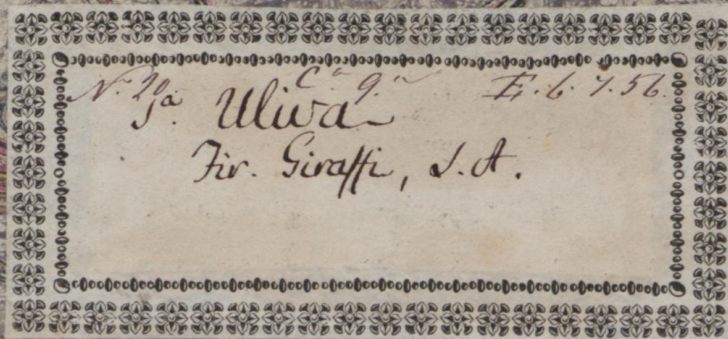 N. 20 C.a 9.a E. 6. 7. 56.
J.a Uliva
Fir. Giraffi, S. A.